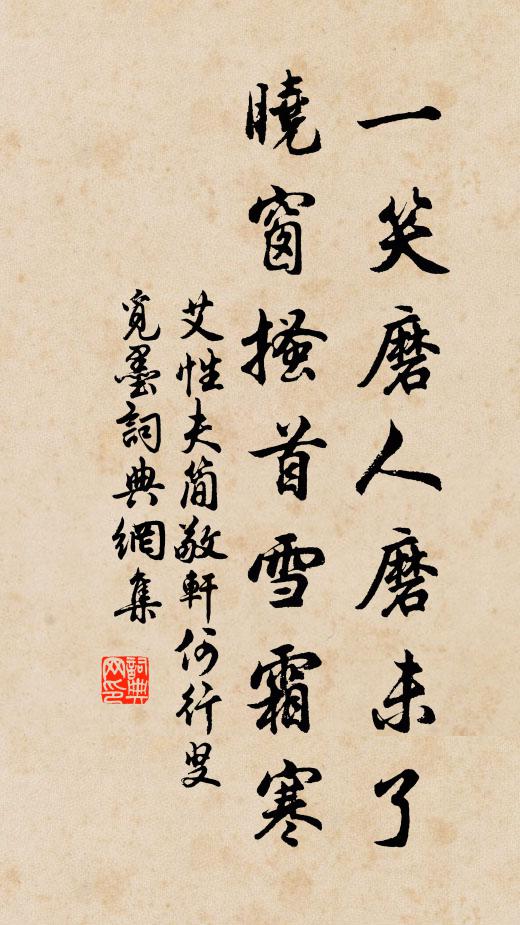 一笑磨人磨未了
曉窗搔首雪霜寒
艾性夫簡敬軒何行叟
覓墨詞典網集
詞典网印